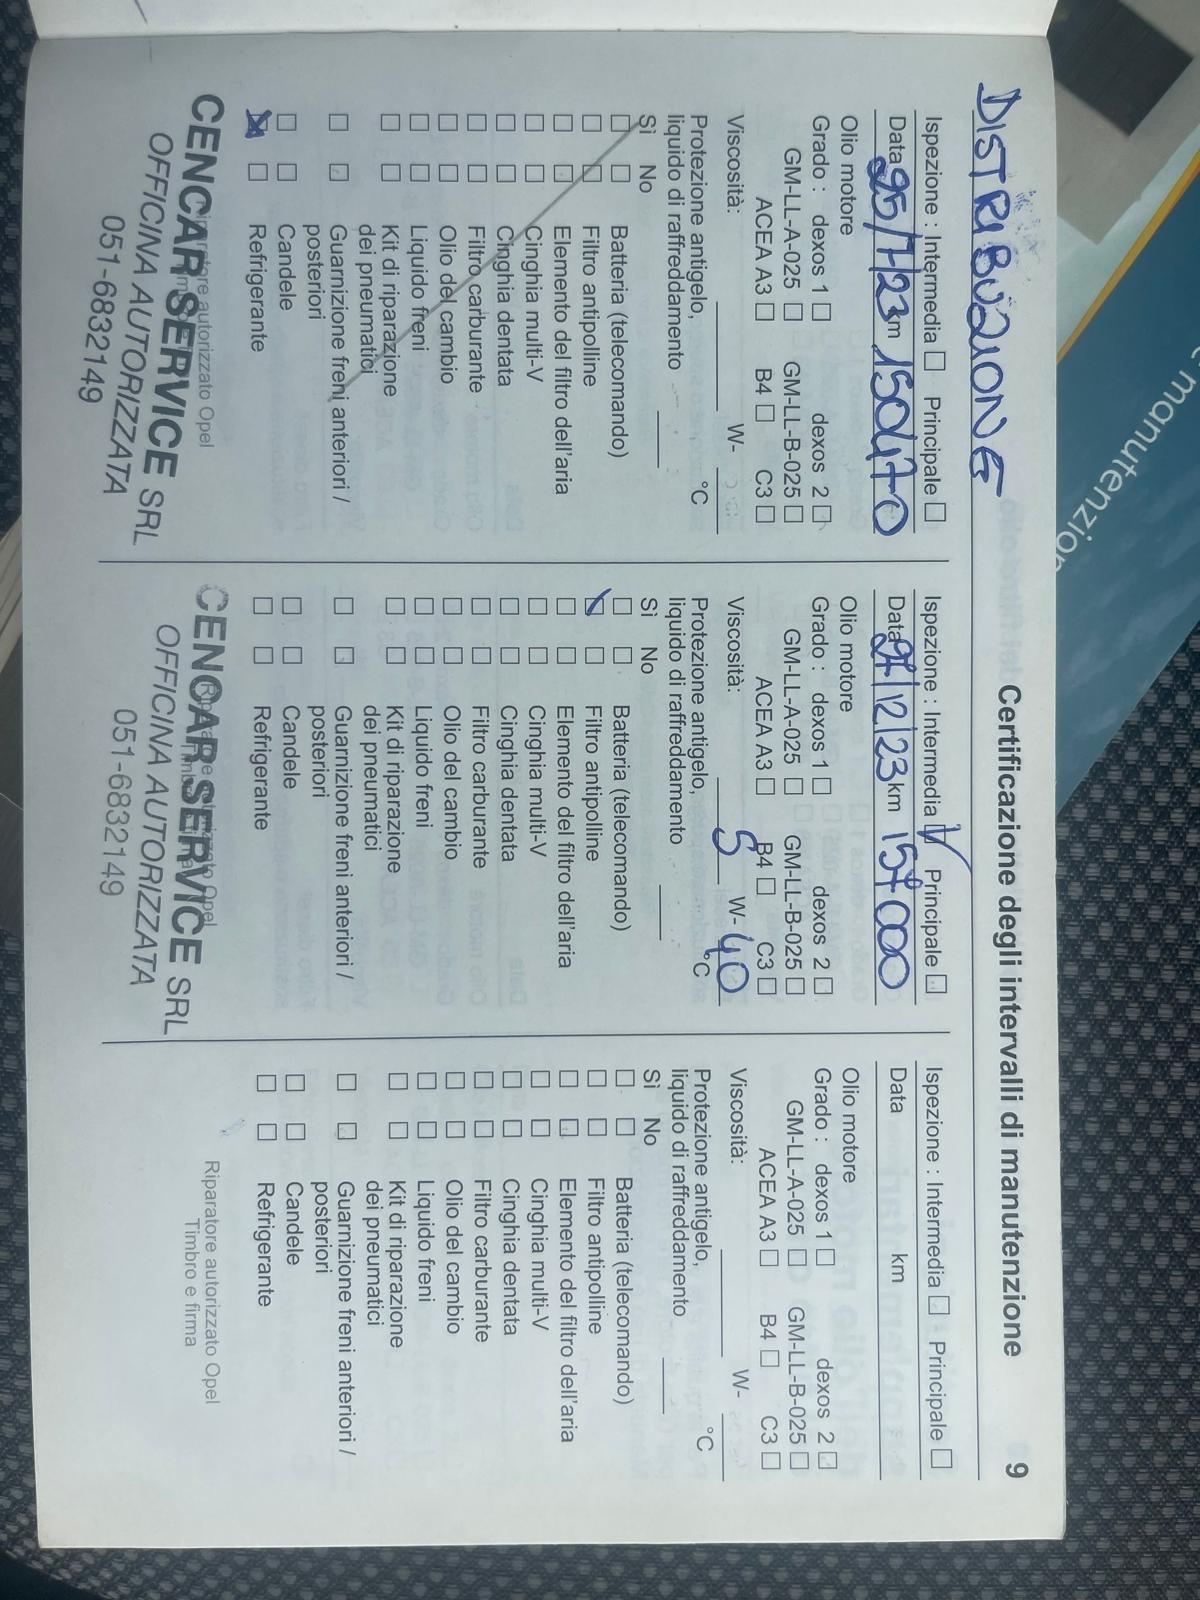 manutenzion
Certificazione degli intervalli di manutenzione
9
DISTRIBUZIONE
Ispezione : Intermedia Principale
Data 25/7/23 km 150470
Olio motore
Grado : dexos 1 dexos 2
GM-LL-A-025 GM-LL-B-025
ACEA A3 B4 C3
Viscosità: W-
Protezione antigelo,
liquido di raffreddamento °C
Sì No
Batteria (telecomando)
Filtro antipolline
Elemento del filtro dell'aria
Cinghia multi-V
Cinghia dentata
Filtro carburante
Olio del cambio
Liquido freni
Kit di riparazione
dei pneumatici
Guarnizione freni anteriori /
posteriori
Candele
Refrigerante
Riparatore autorizzato Opel
CENCAR SERVICE SRL
OFFICINA AUTORIZZATA
051-6832149
Ispezione : Intermedia Principale
Data /12/23 km
Olio motore
Grado : dexos 1 dexos 2
GM-LL-A-025 GM-LL-B-025
ACEA A3 B4 C3
Viscosità: 5 W- 40
Protezione antigelo,
liquido di raffreddamento °C
Sì No
Batteria (telecomando)
Filtro antipolline
Elemento del filtro dell'aria
Cinghia multi-V
Cinghia dentata
Filtro carburante
Olio del cambio
Liquido freni
Kit di riparazione
dei pneumatici
Guarnizione freni anteriori /
posteriori
Candele
Refrigerante
CENCAR SERVICE SRL
OFFICINA AUTORIZZATA
051-6832149
Ispezione : Intermedia Principale
Data km
Olio motore
Grado : dexos 1 dexos 2
GM-LL-A-025 GM-LL-B-025
ACEA A3 B4 C3
Viscosità: W-
Protezione antigelo,
liquido di raffreddamento °C
Sì No
Batteria (telecomando)
Filtro antipolline
Elemento del filtro dell'aria
Cinghia multi-V
Cinghia dentata
Filtro carburante
Olio del cambio
Liquido freni
Kit di riparazione
dei pneumatici
Guarnizione freni anteriori /
posteriori
Candele
Refrigerante
Riparatore autorizzato Opel
Timbro e firma